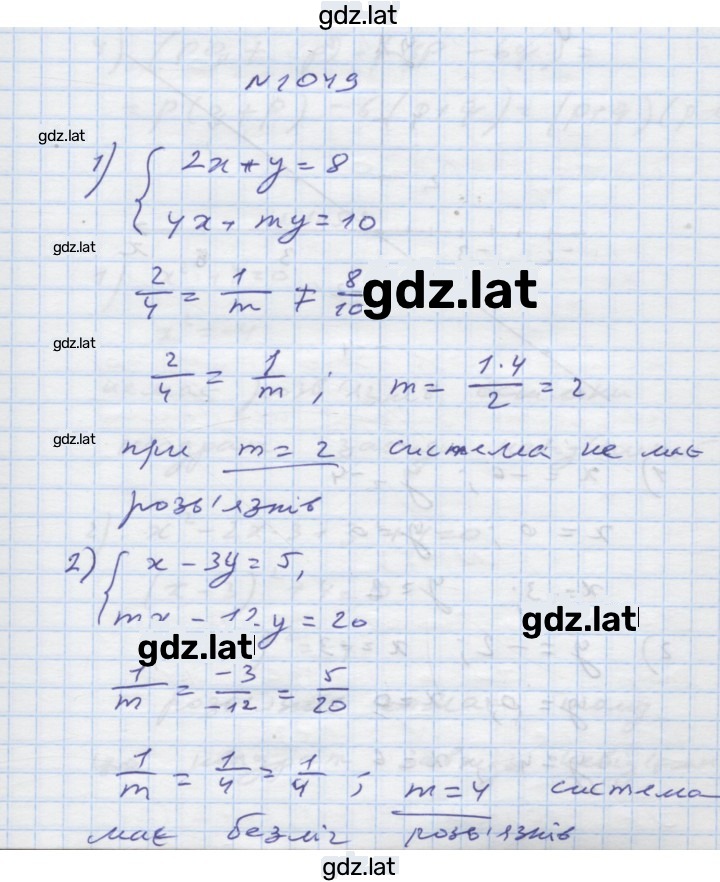 gdz.lat
№1049
gdz.lat
1) { 2x + y = 8
4x + my = 10
gdz.lat
2/4 = 1/m ≠ 8/10 gdz.lat
gdz.lat
2/4 = 1/m ; m = 1·4/2 = 2
gdz.lat
при m = 2 система не має
розв'язків
2) { x - 3y = 5,
mx - 12y = 20
gdz.lat
gdz.lat
1/m = -3/-12 = 5/20
1/m = 1/4 = 1/4 ; m = 4 система
має безліч розв'язків
gdz.lat